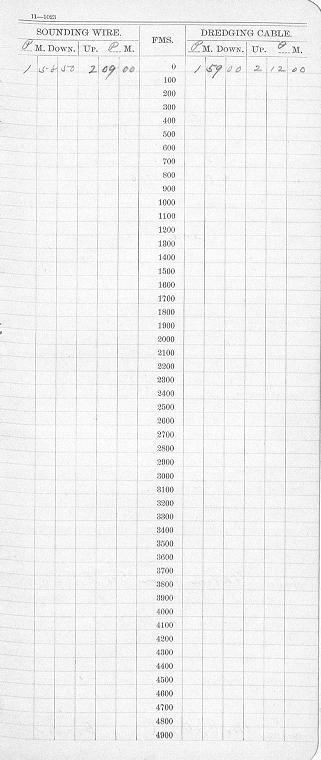 11—1023
SOUNDING WIRE. FMS. DREDGING CABLE.
P M. Down. Up. P M. P M. Down. Up. P M.
1 58 50 2 09 00 0 1 59 00 2 12 00
100
200
300
400
500
600
700
800
900
1000
1100
1200
1300
1400
1500
1600
1700
1800
1900
2000
2100
2200
2300
2400
2500
2600
2700
2800
2900
3000
3100
3200
3300
3400
3500
3600
3700
3800
3900
4000
4100
4200
4300
4400
4500
4600
4700
4800
4900